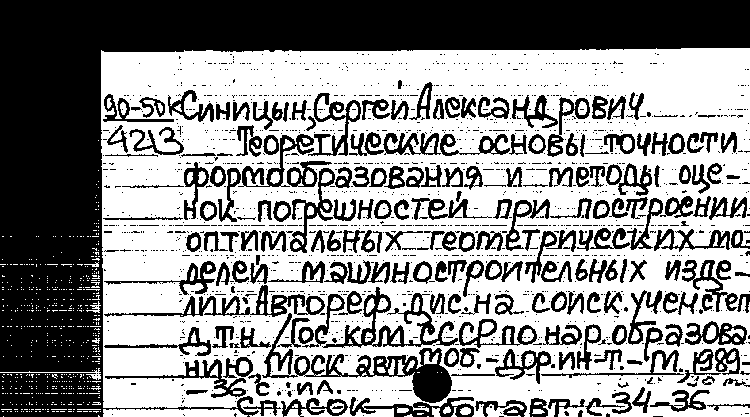 90-50К Синицын, Сергей Александрович.
4213 Теоретические основы точности
формообразования и методы оце-
нок погрешностей при построении
оптимальных геометрических мо-
делей машиностроительных изде-
лий: Автореф. дис. на соиск. учен. степ.
д.т.н. /Гос. ком. СССР по нар. образова-
нию, Моск. автомоб.-дор. ин-т.- М., 1989.-
-36 с.: ил.
Список работ авт.: с. 34-36